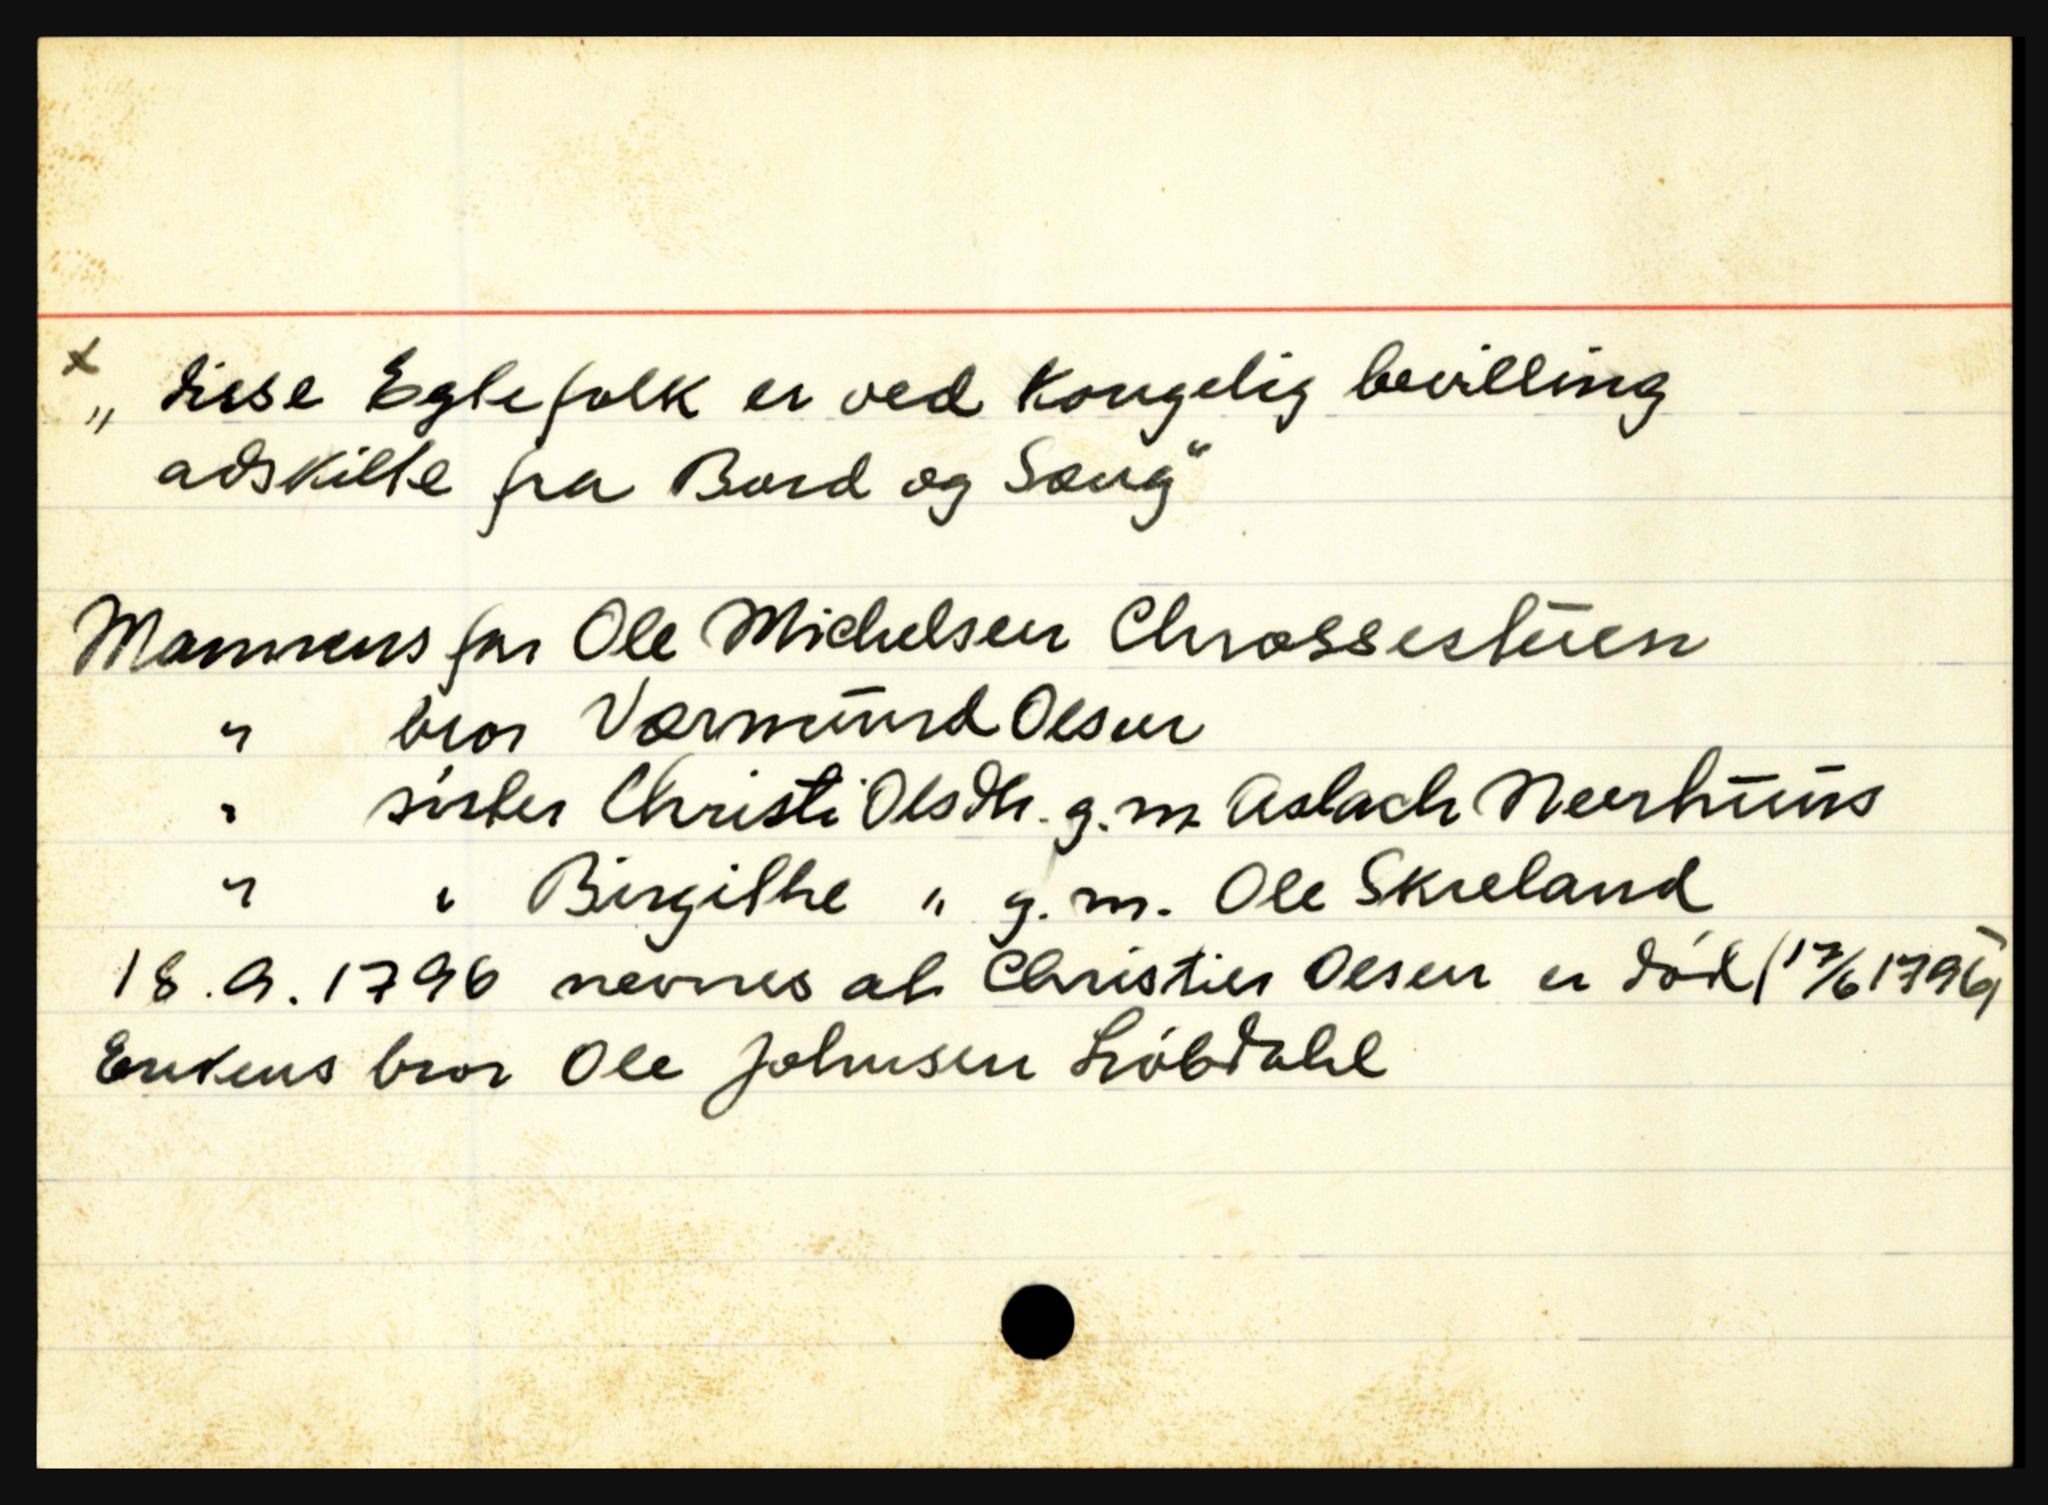 x
„ disse Egtefolk er ved Kongelig bevilling
adskilte fra Bord og Sæng“
Mannens far Ole Michelsen Chrossestuen
" bror Værmund Olsen
" sister Christi Olsdtr. g.m. Aslach Neerhuus
" " Birgithe " g.m. Ole Skreland
18.9.1796 nevnes at Christen Olsen er död (17/6 1796)
Enkens bror Ole Johnsen Lröbdahl